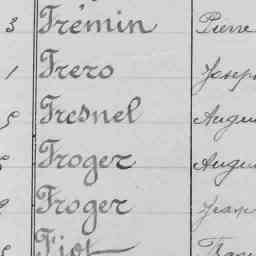 3 Frémin Pierre
1 Frero Joseph
Fresnel Augu
Froger Augu
Froger Jean
Fiot